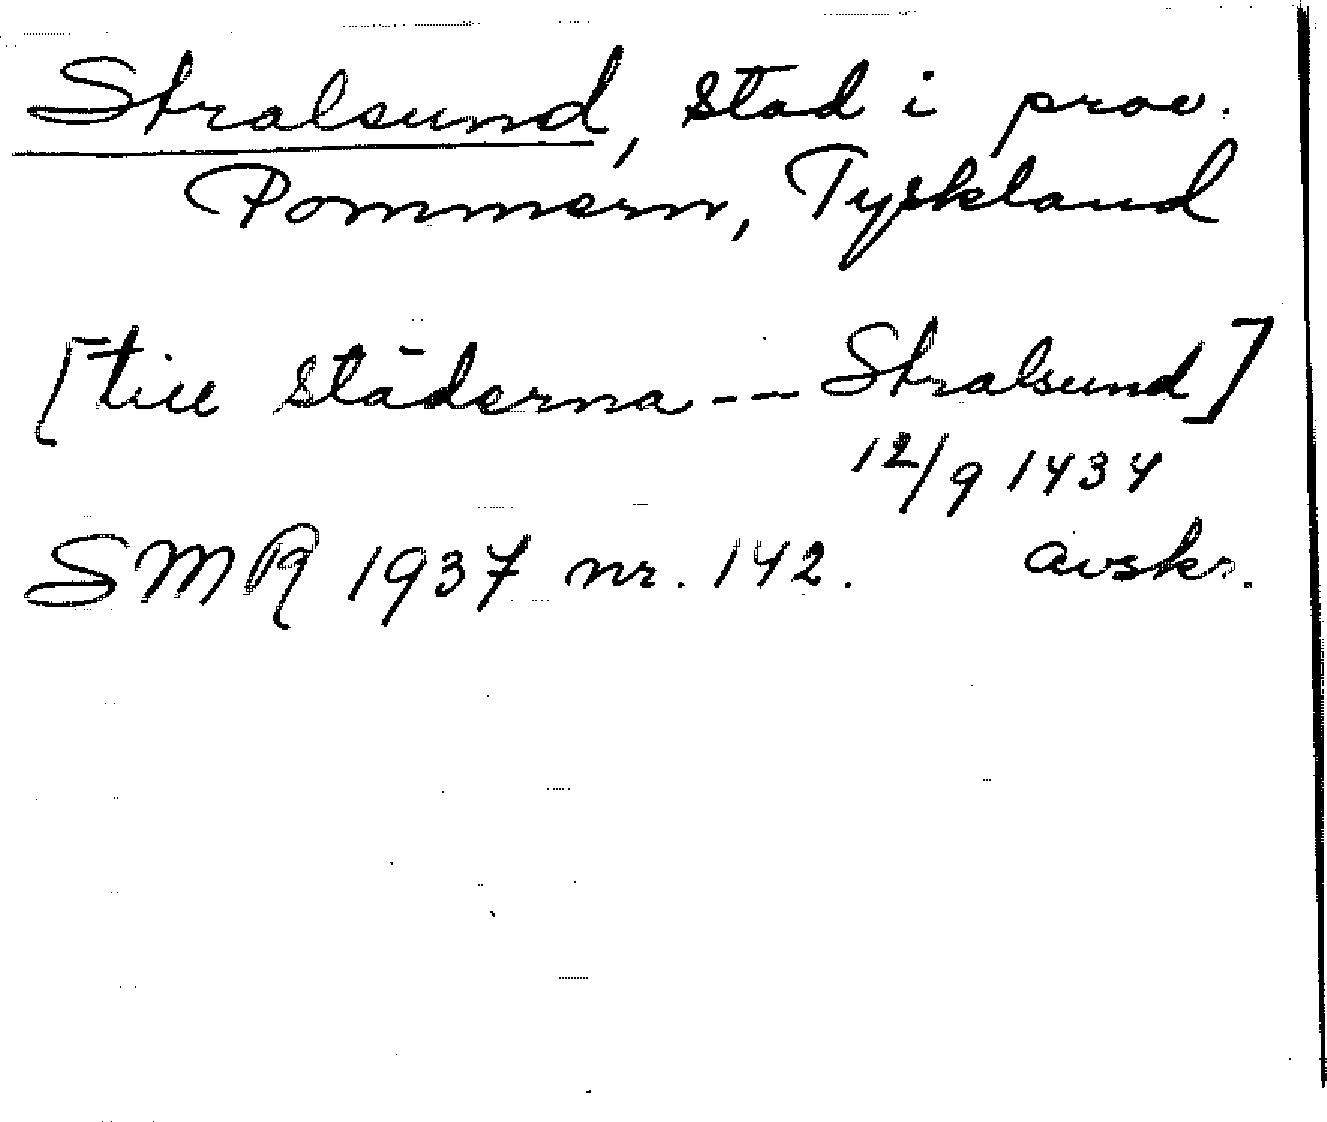 Stralsund, stad i prov.
Pommern, Tyskland
[till städerna -- Stralsund]
12/9 1434
SMR 1937 nr. 142. avskr.